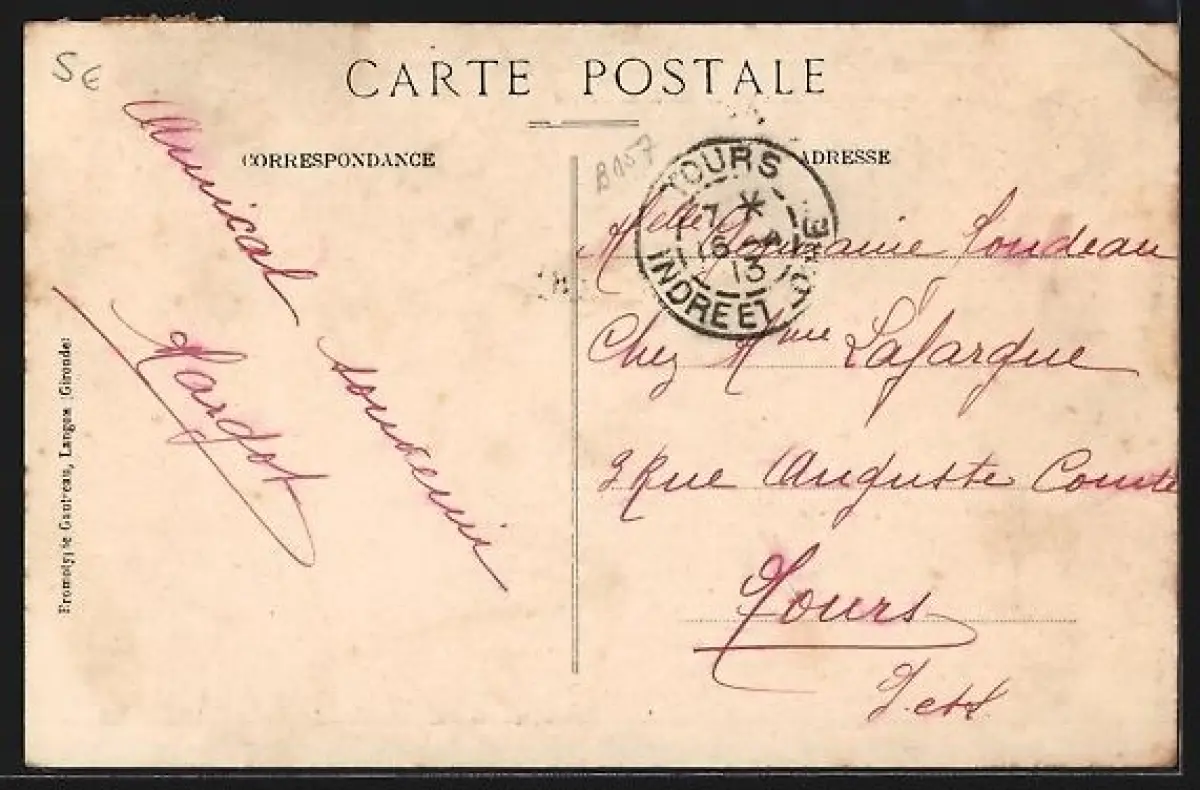 5 €
CARTE POSTALE
CORRESPONDANCE
ADRESSE
B157
TOURS
7 *
16
13
INDRE ET LOIRE
Amical
souvenir
Margot
Melle Germaine
Chez Mme Lafargue
3 Rue Auguste Comte
Tours
I. et L.
Bromotypie Gautreau, Langon (Gironde)